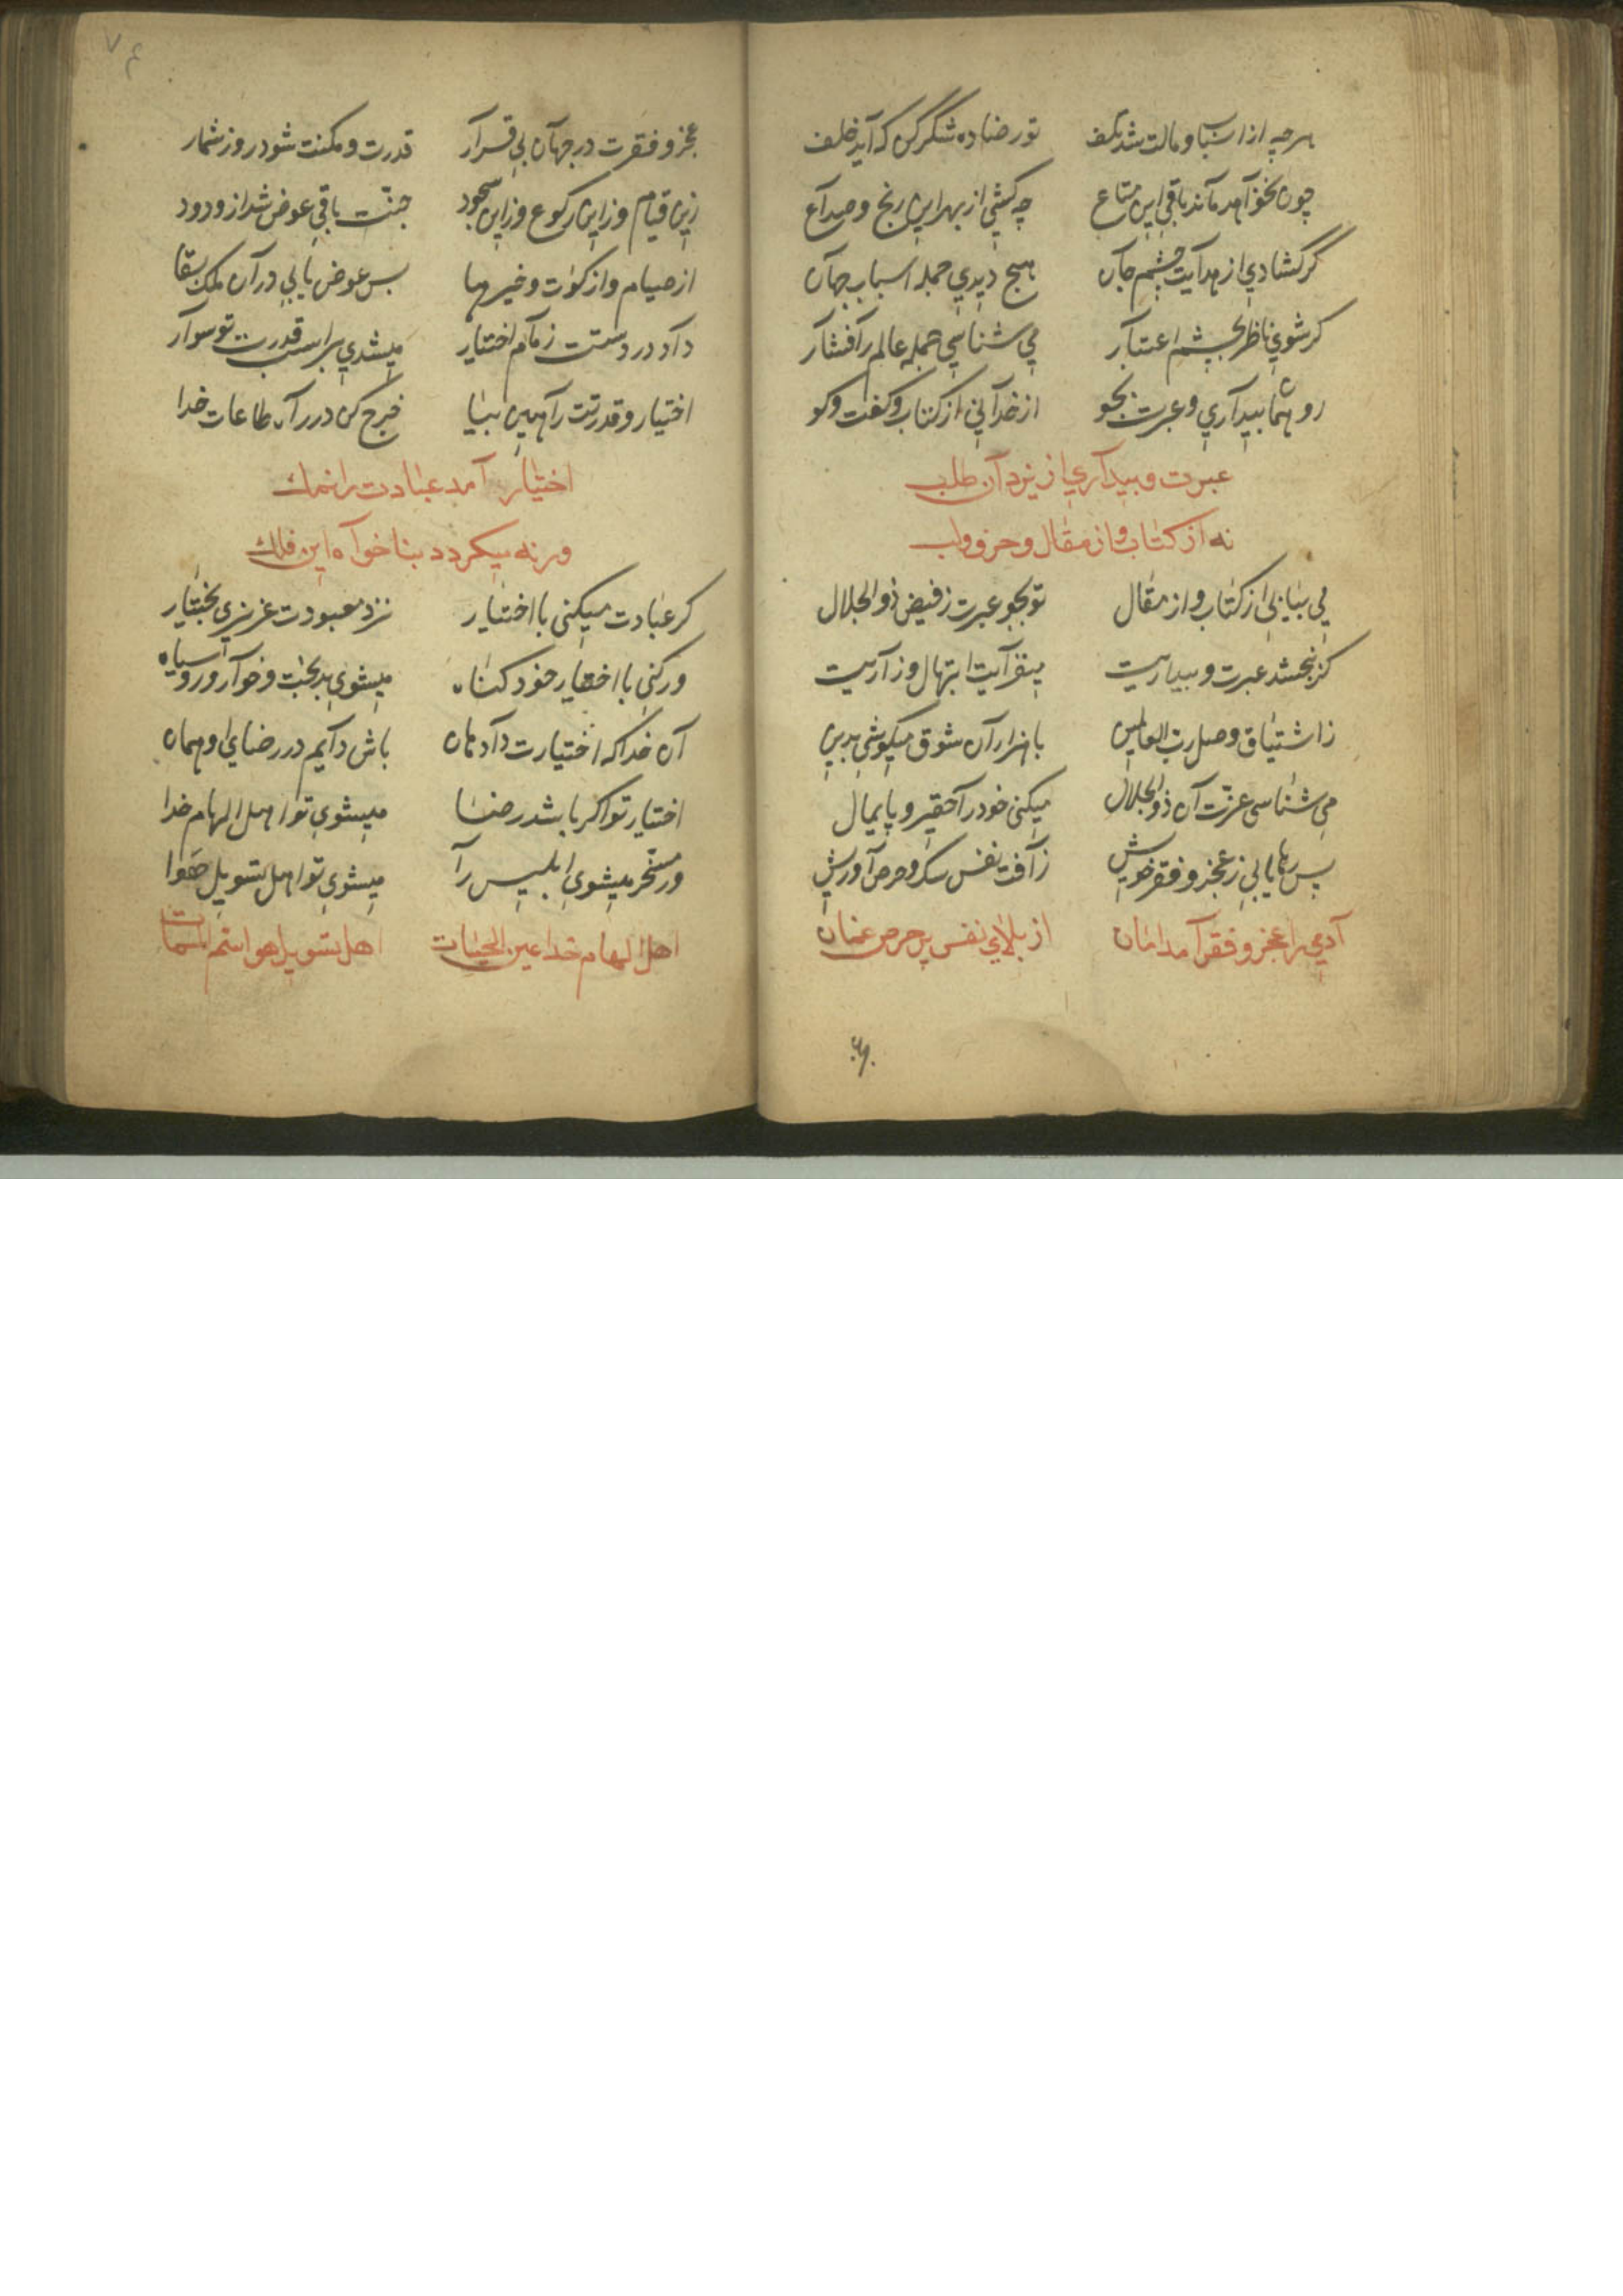 هرچه از اسباب و مالت شد تلف تو رضا ده شکر کن که آید خلف
چون نخواهد ماند باقی این متاع چه کشی از بهر این رنج و صداع
گر کشادی از هدایت چشم جان هیچ دیدی جمله اسباب جهان
کر شوی ناظر بچشم اعتبار می شناسی جمله عالم را فشار
رو شما بیداری و عبرت بجو از خدا نی از کتاب و کفت و کو
عبرت و بیداری از یزدان طلب
نه از کتاب و از مقال و حرف و لب
می نیابی از کتاب و از مقال تو بجو عبرت ز فیض ذو الجلال
کر نبخشد عبرت و بیداریت ابتهال و زاریت
ز اشتیاق وصل رب العالمین با هزاران شوق میکوشی بدین
می شناسی عزّت آن ذو الجلال میکنی خود را حقیر و پایمال
پس رها یابی ز عجز و فقر خویش ز آفت نفس سک و حرص آوریش
آدمی را عجز و فقر آمد امان از بلای نفس پر حرص غمان
عجز و فقرت در جهان بی قرار قدرت و مکنت شود روز شمار
زین قیام وز این رکوع وز این سجود جنّت باقی عوض شد از ودود
از صیام و از زکوٰت و خیرها بس عوض یابی در آن ملک بقا
داد در دستت زمام اختیار میشدی بر اسب قدرت تو سوار
اختیار و قدرتت را همین بیا خرج کن در راه طاعات خدا
اختیار آمد عبادت را نمک
ورنه میکردد بناخواه این فلک
کر عبادت میکنی با اختیار نزد معبودت عزیزی بختیار
ور کنی با اختیار خود کناه میشوی بدبخت و خوار و روسیاه
آن خدا که اختیارت داد هان باش دایم در رضای او همان
اختیار تو اکر باشد رضا میشوی تو اهل الهام خدا
ور مسخّر میشوی ابلیس را میشوی تو اهل تسویل هوا
اهل الهام خدا عین الحیات اهل تسویل هوا سّم الممات